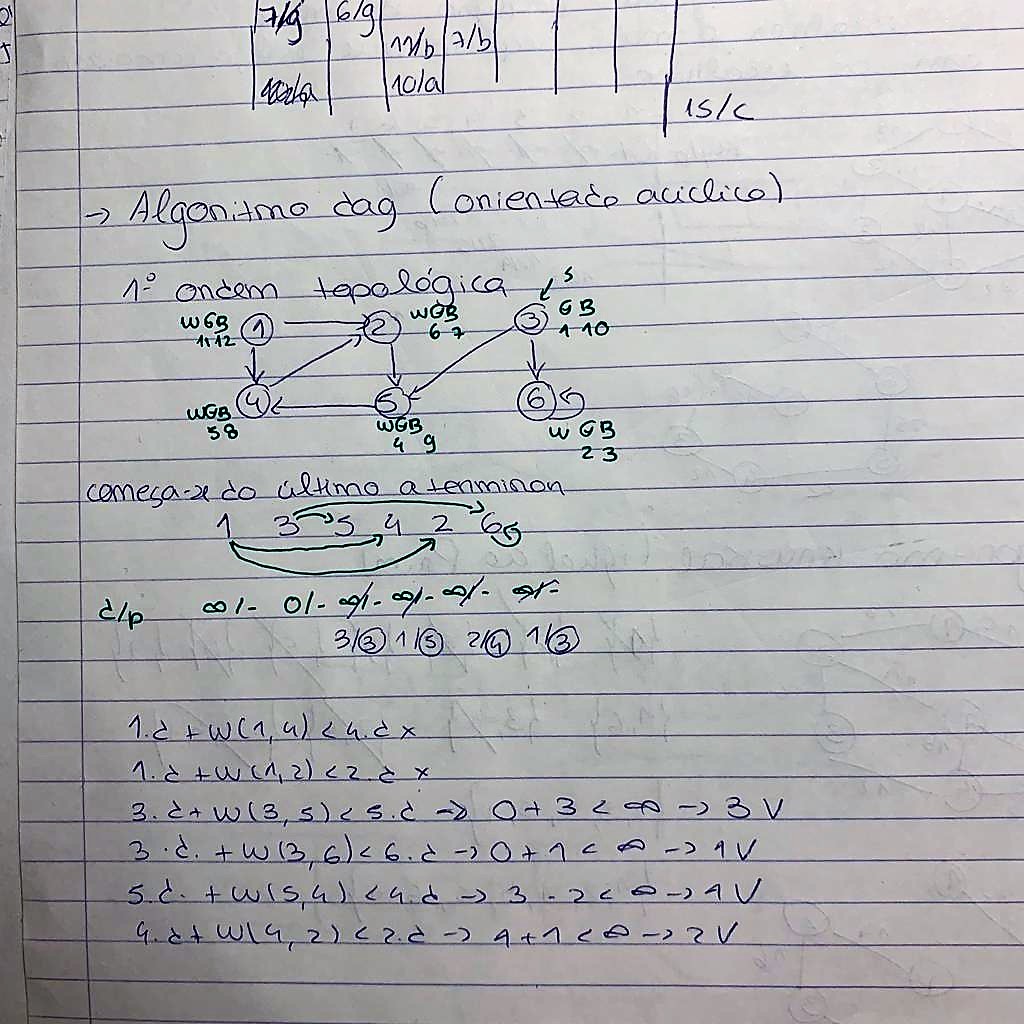 7/g 6/g
11/b 7/b
10/a
15/c
→ Algoritmo dag (orientado aciclico)
1º ordem topológica
s
WGB 1 2 WGB 3 GB
11 12 6 7 1 10
WGB 4 5 6
5 8 WGB W GB
4 9 2 3
começa-se do último a terminar
1 3 5 4 2 6
d/p ∞/- 0/- ∞/- ∞/- ∞/- ∞/-
3/3 1/5 2/4 1/3
1.d + w(1,4) < 4.d x
1.d + w(1,2) < 2.d x
3.d + w(3,5) < 5.d → 0 + 3 < ∞ → 3 V
3.d. + w(3,6) < 6.d → 0 + 1 < ∞ → 1 V
5.d. + w(5,4) < 4.d → 3 - 2 < ∞ → 1 V
4.d + w(4,2) < 2.d → 1 + 1 < ∞ → 2 V